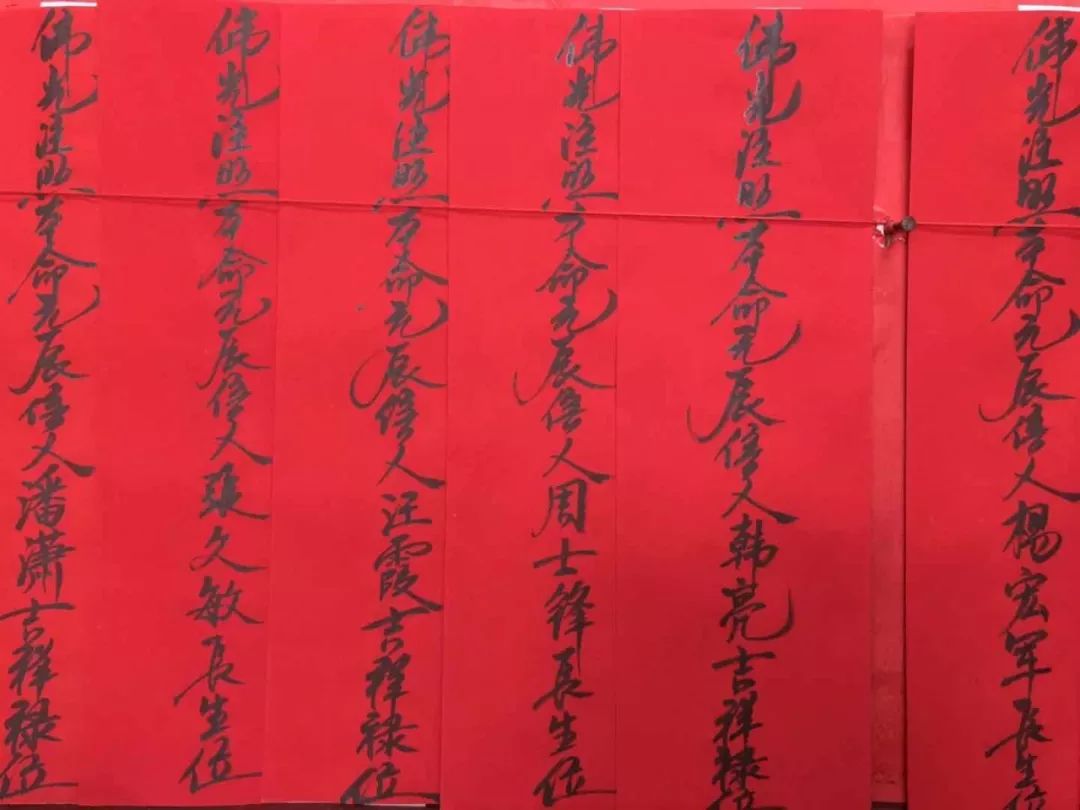 佛光注照本命元辰信人楊宏军長生位
佛光注照本命元辰信人韩亮吉祥禄位
佛光注照本命元辰信人周士鋒長生位
佛光注照本命元辰信人汪霞吉祥禄位
佛光注照本命元辰信人張久敏長生位
佛光注照本命元辰信人潘瀟吉祥禄位